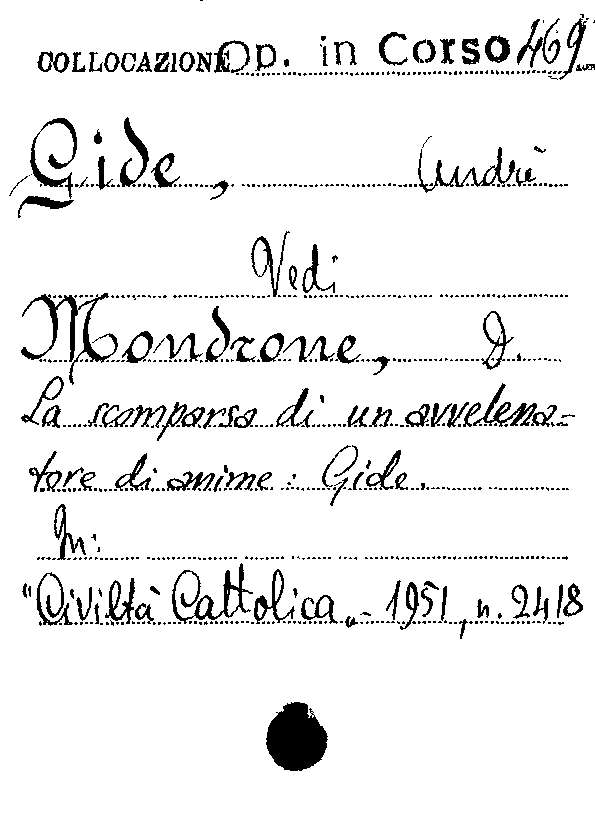 COLLOCAZIONE Op. in Corso 469
Gide, Andrè
Vedi
Mondrone, D.
La scomparsa di un avvelena-
tore di anime: Gide.
In:
"Civiltà Cattolica„- 1951, n. 2418